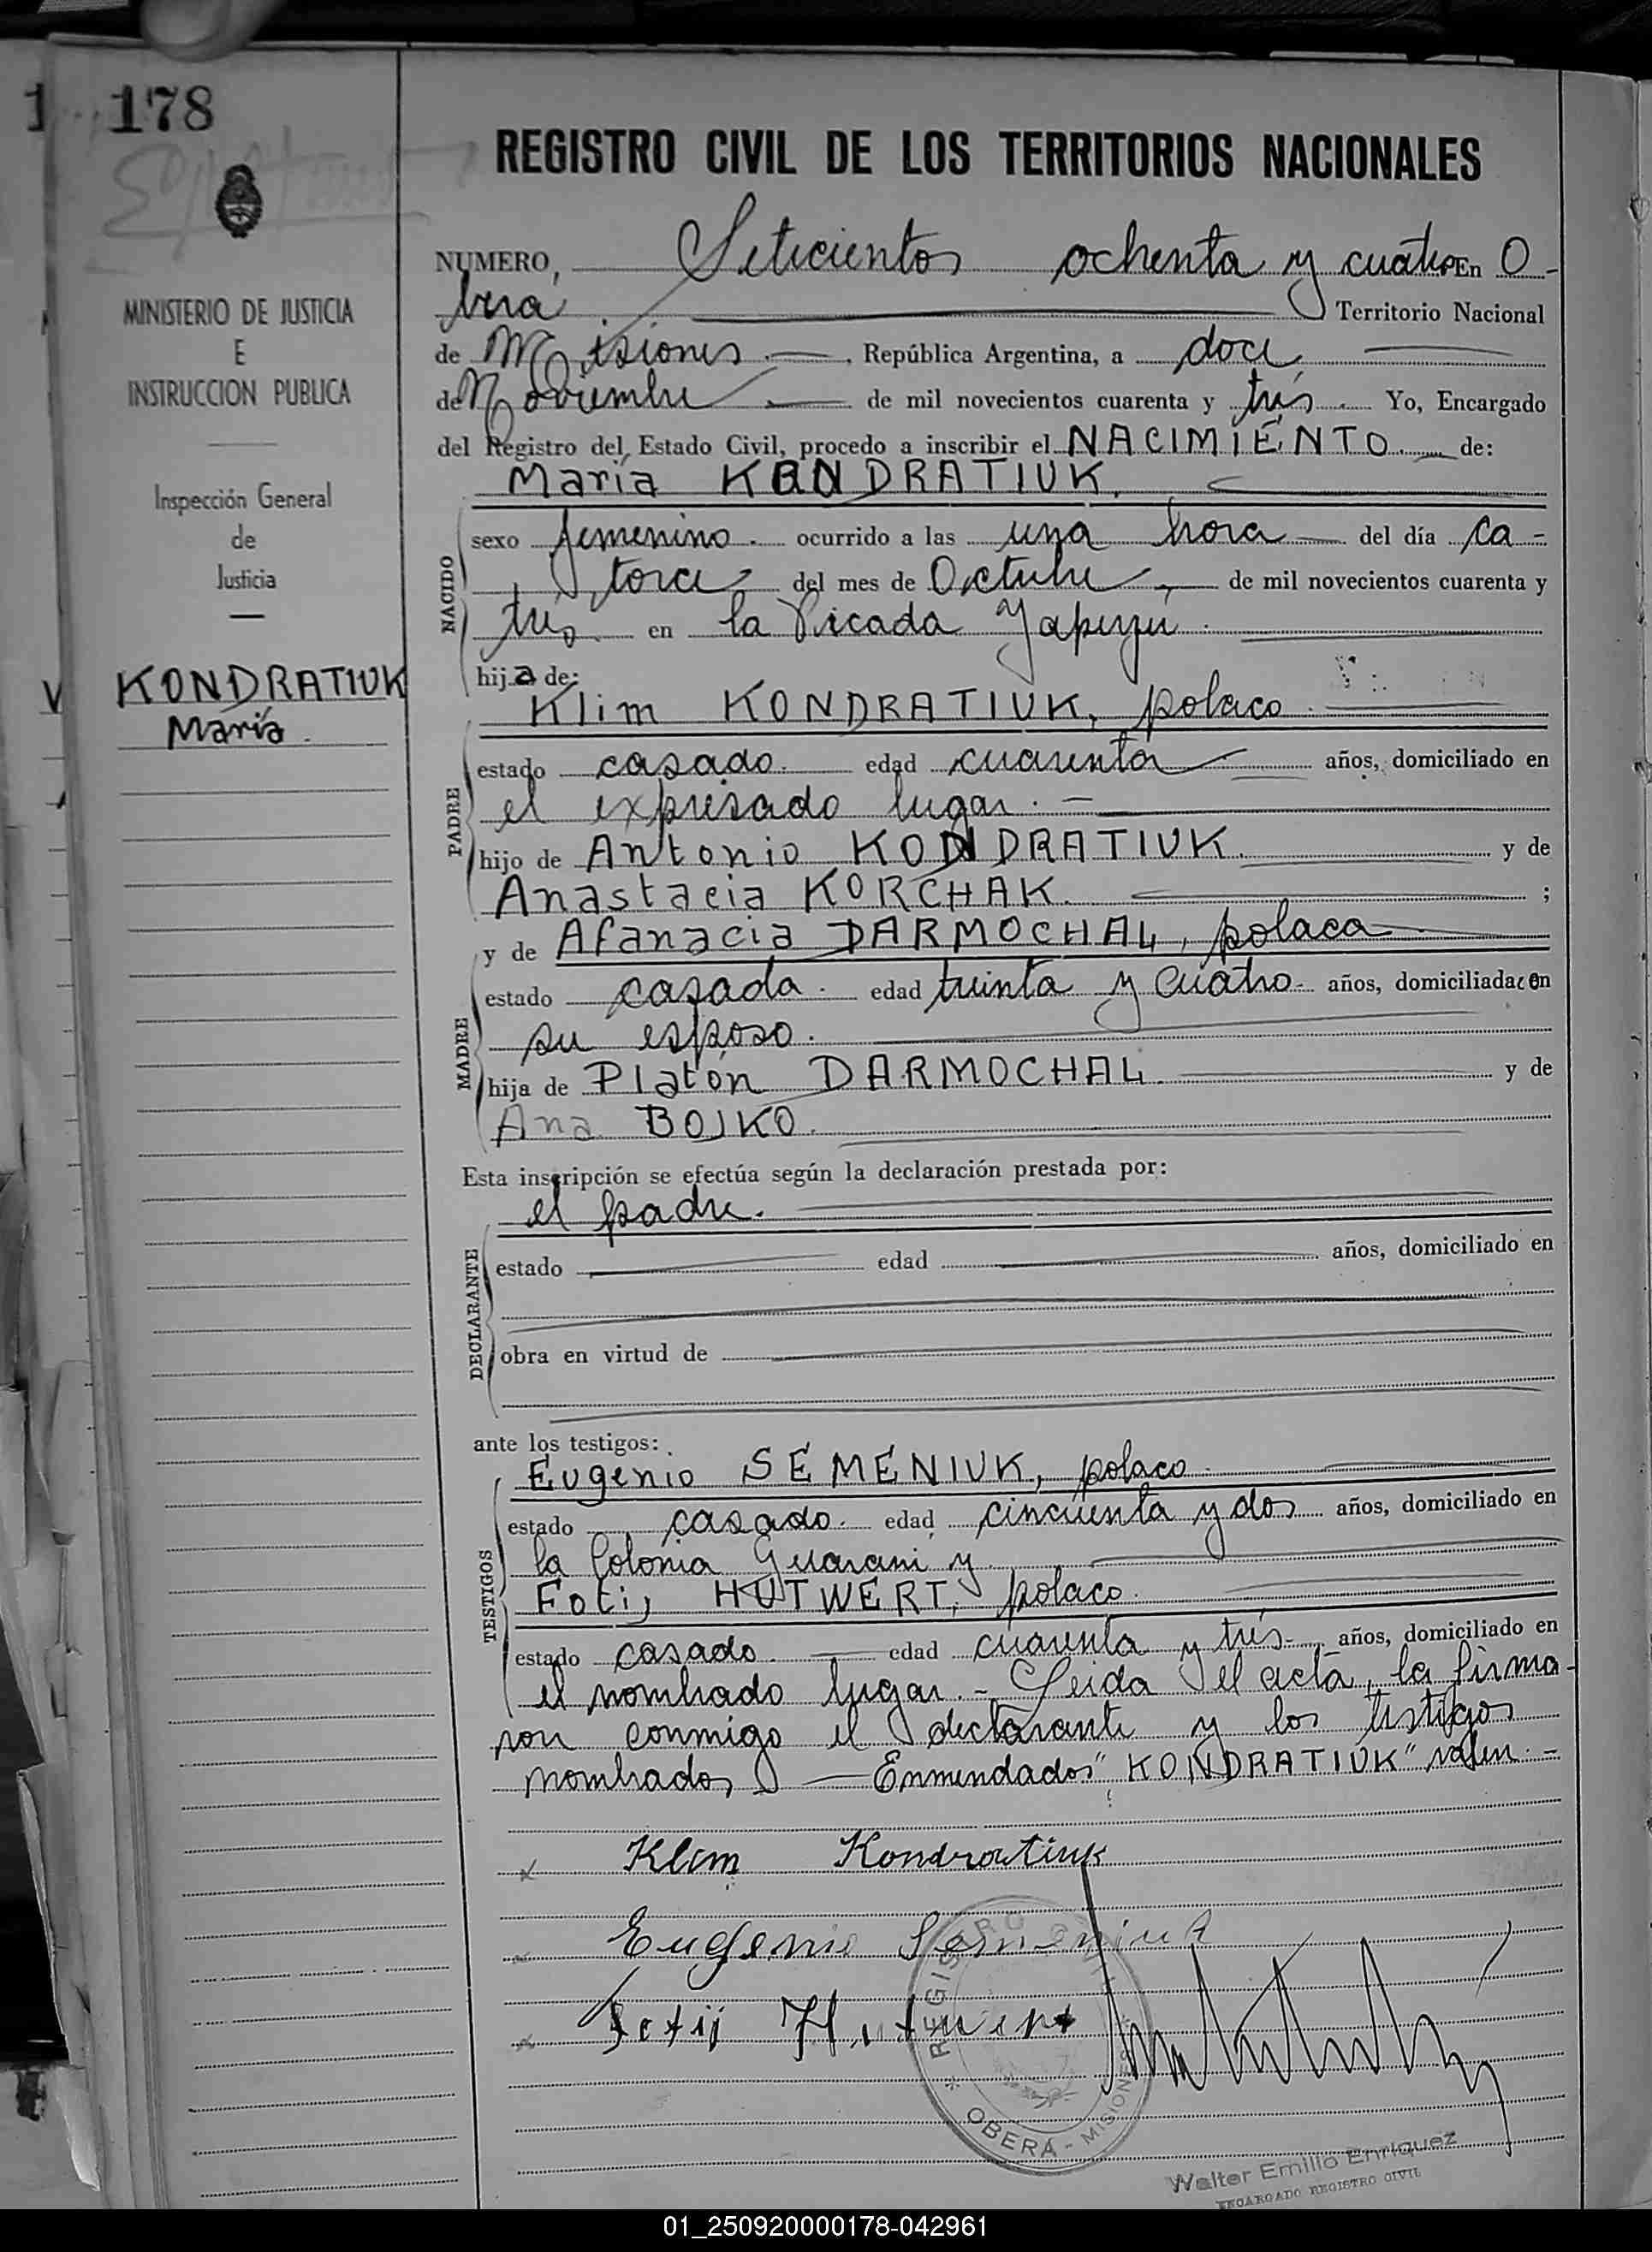 178
REGISTRO CIVIL DE LOS TERRITORIOS NACIONALES
MINISTERIO DE JUSTICIA
E
INSTRUCCION PUBLICA
Inspección General
de
Justicia
KONDRATIUK
María
NUMERO, Seticientos ochenta y cuatro En O-
berá. Territorio Nacional
de Misiones República Argentina, a doce
de Noviembre de mil novecientos cuarenta y tres Yo, Encargado
del Registro del Estado Civil, procedo a inscribir el NACIMIENTO de:
María KONDRATIUK.
NACIDO
sexo femenino. ocurrido a las una hora del día ca-
torce del mes de Octubre, de mil novecientos cuarenta y
tres en la Picada Yapeyú.
hija de:
Klim KONDRATIUK, polaco
PADRE
estado casado. edad cuarenta años, domiciliado en
el expresado lugar.-
hijo de Antonio KONDRATIUK. y de
Anastacia KORCHAK. ;
y de Afanacia DARMOCHAL, polaca
MADRE
estado casada. edad treinta y cuatro- años, domiciliada con
su esposo.
hija de Platón DARMOCHAL. y de
Ana BOJKO.
Esta inscripción se efectúa según la declaración prestada por:
el padre.
DECLARANTE
estado edad años, domiciliado en
obra en virtud de
ante los testigos:
Eugenio SEMENIUK, polaco
TESTIGOS
estado casado. edad cincuenta y dos años, domiciliado en
la Colonia Guaraní y
Fotij HUTWERT, polaco
estado casado. edad cuarenta y tres- años, domiciliado en
el nombrado lugar.- Leida el acta, la firma-
ron conmigo el declarante y los testigos
nombrados Enmendados "KONDRATIUK" valen.-
Klim Kondratiuk
Eugenio Semeniuk
Fotij Hutwert
REGISTRO CIVIL
OBERÁ - MISIONES
Walter Emilio Enriquez
ENCARGADO REGISTRO CIVIL
01_250920000178-042961